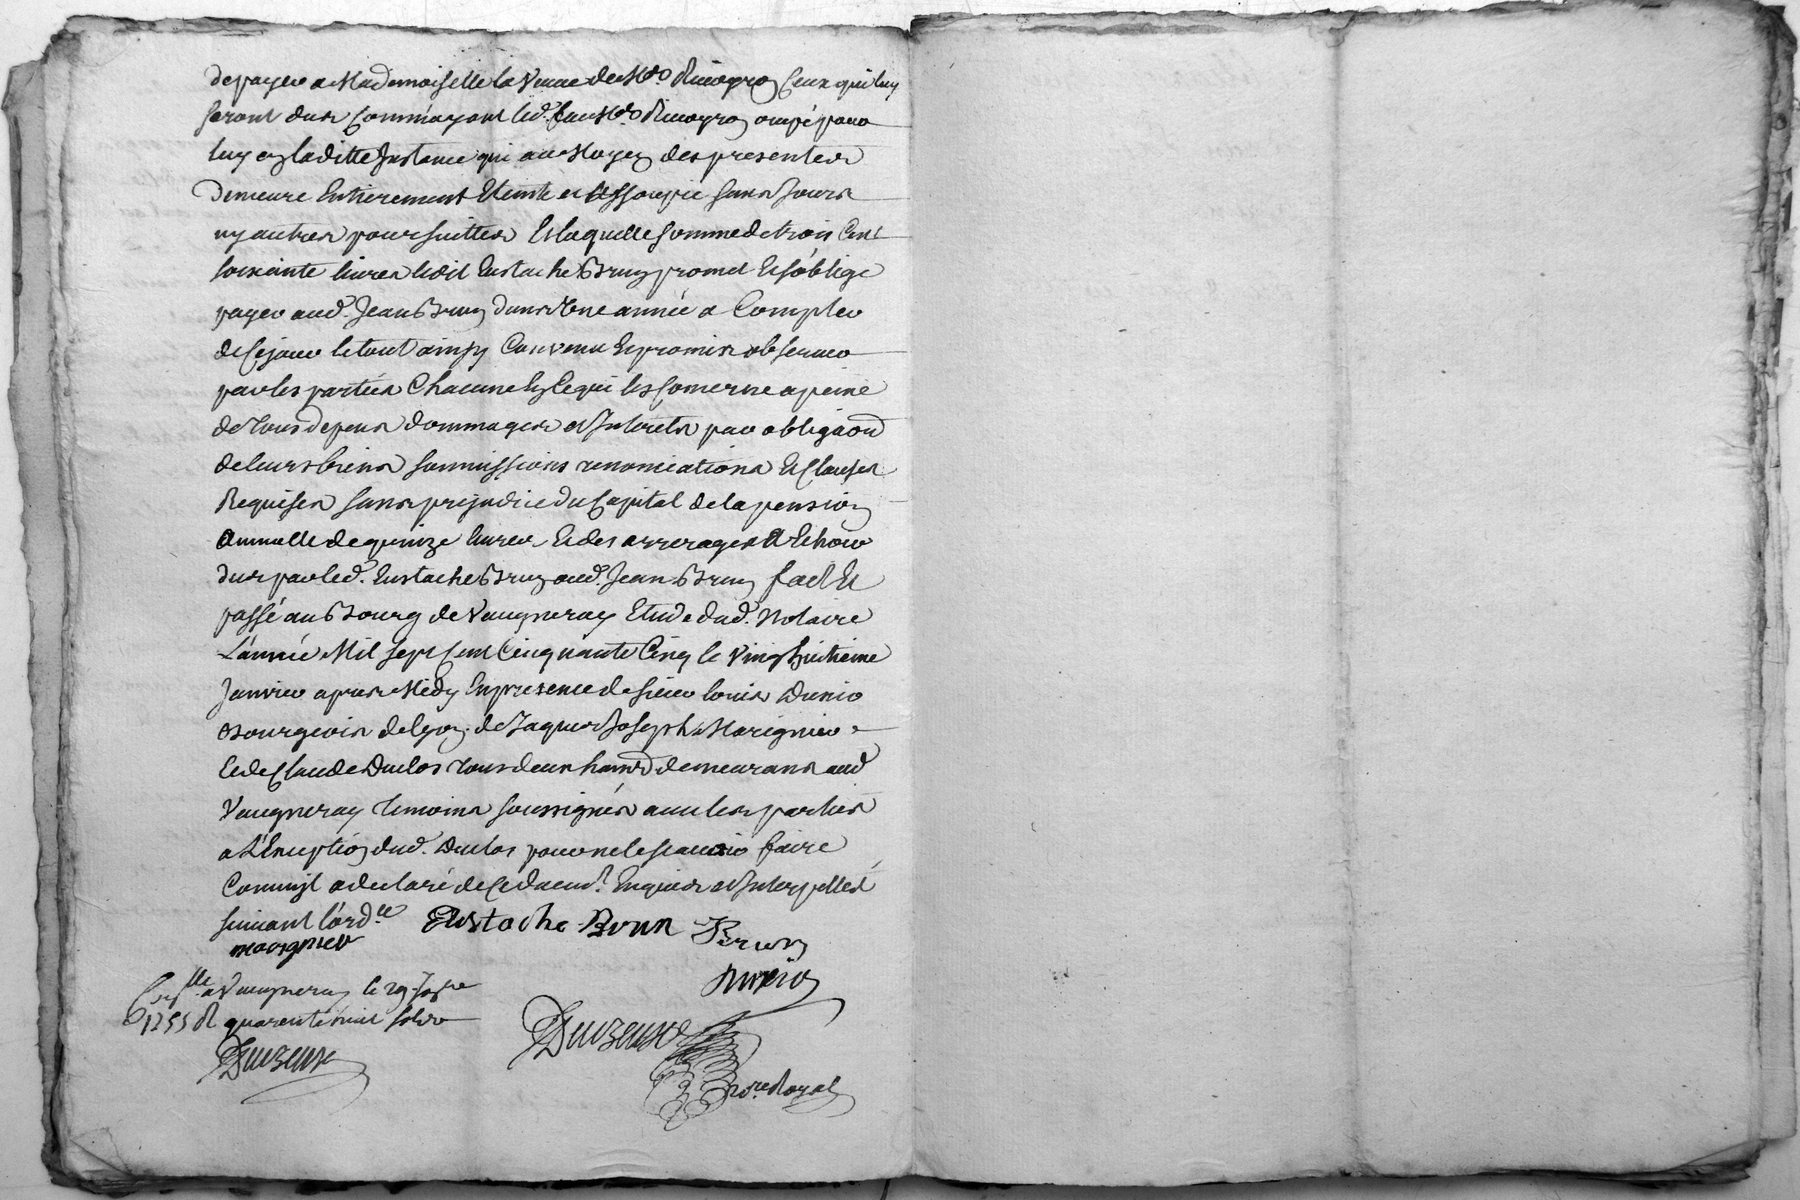 depayer a Mademoiselle la Veuve de Me. Rivoyron Ceux qui luy
seront dus Comm'ayant led. feu Me. Rivoyron occupé pour
luy en laditte Instance qui au Moyen des presentes
Demeure Entierement Eteinte et Assoupie sans Jours
ny autres poursuittes Et laquelle somme de trois Cent
soixante livres ledit Eustache Brun promet Et s'oblige
payer aud. Jean Brun dans Une année a Compter
de Ce jour le tout ainsy Convenu Et promis observer
par les parties Chacune En Ce qui les Concerne a peine
de Tous depens dommages et Interets par obligaon
de leurs biens soumissions renonciations Et Clauses
Requises sans prejudice du Capital de la pension
Annuelle de quinze livres Et des arrerages A Echoir
dus par led. Eustache Brun aud. Jean Brun fait Et
passé au Bourg de Vaugneray Etude dud. Notaire
L'année Mil sept Cent Cinquante Cinq le Vingt huitieme
Janvier apres Midy En presence de sieur louis
Bourgeois de Lyon, de Jaques Joseph Marignier
Et de Claude Duclos tous deux demeurans aud
Vaugneray temoins soussignés avec les parties
a L'Exception dud. Duclos pour ne le scavoir faire
Comm'il a declaré de Ce Enquis et Interpellé
suivant l'ordce
Eustache Brun Brun
marignier
Conllé a Vaugneray le 29 Janvre
1755 R quarente huit sols
Duizeux
Duizeux
Nore Royal